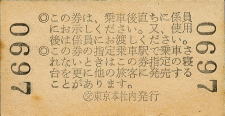 ◎この券は、乗車後直ちに係員
にお示しください。又、使用
後は係員にお渡しください。
◎この券の指定乗車駅で乗車さ
れないときはこの券で指定の寝
台を更に他の旅客に発売する
ことがあります。
東京本社内発行
0697
0697